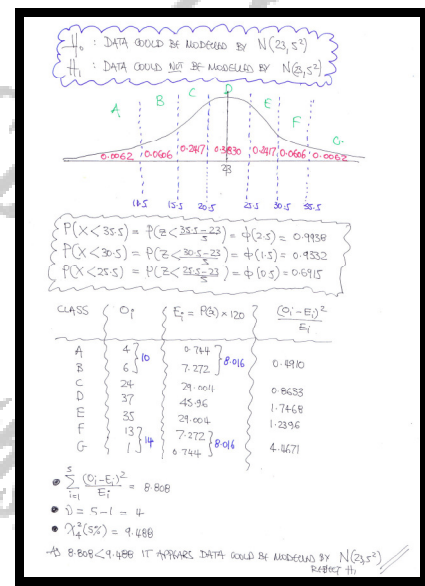 H₀ : DATA COULD BE MODELLED BY N(23, 5²)
H₁ : DATA COULD NOT BE MODELLED BY N(23, 5²)
A B C D E F G
0.0062 0.0606 0.2417 0.3830 0.2417 0.0606 0.0062
23
10.5 15.5 20.5 25.5 30.5 35.5
P(X<35.5) = P(Z<(35.5-23)/5) = Φ(2.5) = 0.9938
P(X<30.5) = P(Z<(30.5-23)/5) = Φ(1.5) = 0.9332
P(X<25.5) = P(Z<(25.5-23)/5) = Φ(0.5) = 0.6915
CLASS Oᵢ Eᵢ = P(x) × 120 (Oᵢ-Eᵢ)²/Eᵢ
A 4 } 10 0.744 } 8.016
B 6 7.272 0.4910
C 24 29.004 0.8633
D 37 45.96 1.7468
E 35 29.004 1.2396
F 13 } 14 7.272 } 8.016
G 1 0.744 4.4671
• Σ⁵ᵢ₌₁ (Oᵢ-Eᵢ)²/Eᵢ = 8.808
• ν = 5-1 = 4
• χ²₄(5%) = 9.488
AS 8.808 < 9.488 IT APPEARS DATA COULD BE MODELLED BY N(23, 5²)
REJECT H₁